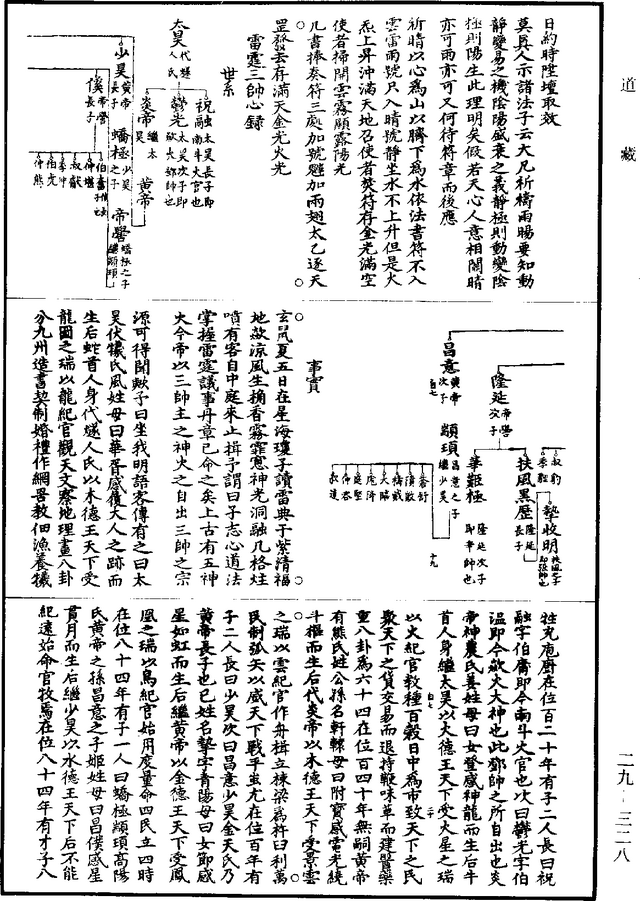 道藏
日約時陞壇取效
莫真人示諸法子云大凡祈禱雨暘要知動
靜變易之機陰陽盛衰之義靜極則動變陰
極則陽生此理明矣假若天心人意相關晴
亦可雨亦可又何待符章而後應
祈晴以心為山以臍下為水依法書符不入
雲雷雨號只入晴號靜坐水不上升但是火
炁上昇沖滿天地召使者焚符存金光滿空
使者掃開雲霧顯露陽光
凡書捧奏符三處加號魃加兩翅太乙逐天
罡發去存滿天金光火光
雷霆三帥心錄
世系
太昊代燧人氏
祝融太昊長子即南斗火官也
鬱光太昊次子即欻火鄧帥也
炎帝繼太昊
黃帝
少昊黃帝長子
蟜極少昊之子
帝嚳蟜極之子繼顓頊
伯奮
仲堪
叔獻
季仲
伯虎
仲熊
叔豹
季貍
隆延帝嚳次子
扶風黑歷隆延長子
摯收明
華鄳極隆延次子即辛帥也
昌意黃帝次子
顓頊昌意之子繼少昊
蒼舒
隤敳
檮戭
大臨
尨降
庭堅
仲容
叔達
事實
玄黓夏五日在星海瓊子讀雷典于紫清福
地欻涼風生楠香霧霏窻神光洞融几格炷
噴有客自中庭來止揖予謂曰子志心道法
掌握雷霆議事丹章已命之矣上古有五神
火今帝以三帥主之神火之自出三帥之宗
源可得聞歟子曰坐我明語客傳有之曰太
昊伏犧氏風姓母曰華胥感履大人之跡而
生后蛇首人身代燧人氏以木德王天下受
龍圖之瑞以龍紀官觀天文察地理畫八卦
分九州造書契制婚禮作網罟教佃漁養犧
牲充庖廚在位百二十年有子二人長曰祝
融字伯庸即今南斗火官也次曰鬱光字伯
溫即今欻火大神也此鄧帥之所自出也炎
帝神農氏姜姓母曰女登感神龍而生后牛
首人身繼太昊以火德王天下受火星之瑞
以火紀官教種百穀日中為市致天下之民
聚天下之貨交易而退持鞭味草而建醫藥
重八卦為六十四在位百四十年無嗣黃帝
有熊氏姓公孫名軒轅母曰附寶感電光繞
斗樞而生后代炎帝以木德王天下受景雲
之瑞以雲紀官作舟楫立棟梁為杵臼利萬
民制弧矢以威天下戰乎蚩尤在位百年有
子二人長曰少昊次曰昌意少昊金天氏乃
黃帝長子也己姓名摯字青陽母曰女節感
星如虹而生后繼黃帝以金德王天下受鳳
凰之瑞以鳥紀官始用度量命四民立四時
在位八十四年有子一人曰蟜極顓頊高陽
氏黃帝之孫昌意之子姬姓母曰昌僕感星
貫月而生后繼少昊以水德王天下后不能
紀遠始命官牧焉在位八十四年有才子八
二九－三二八